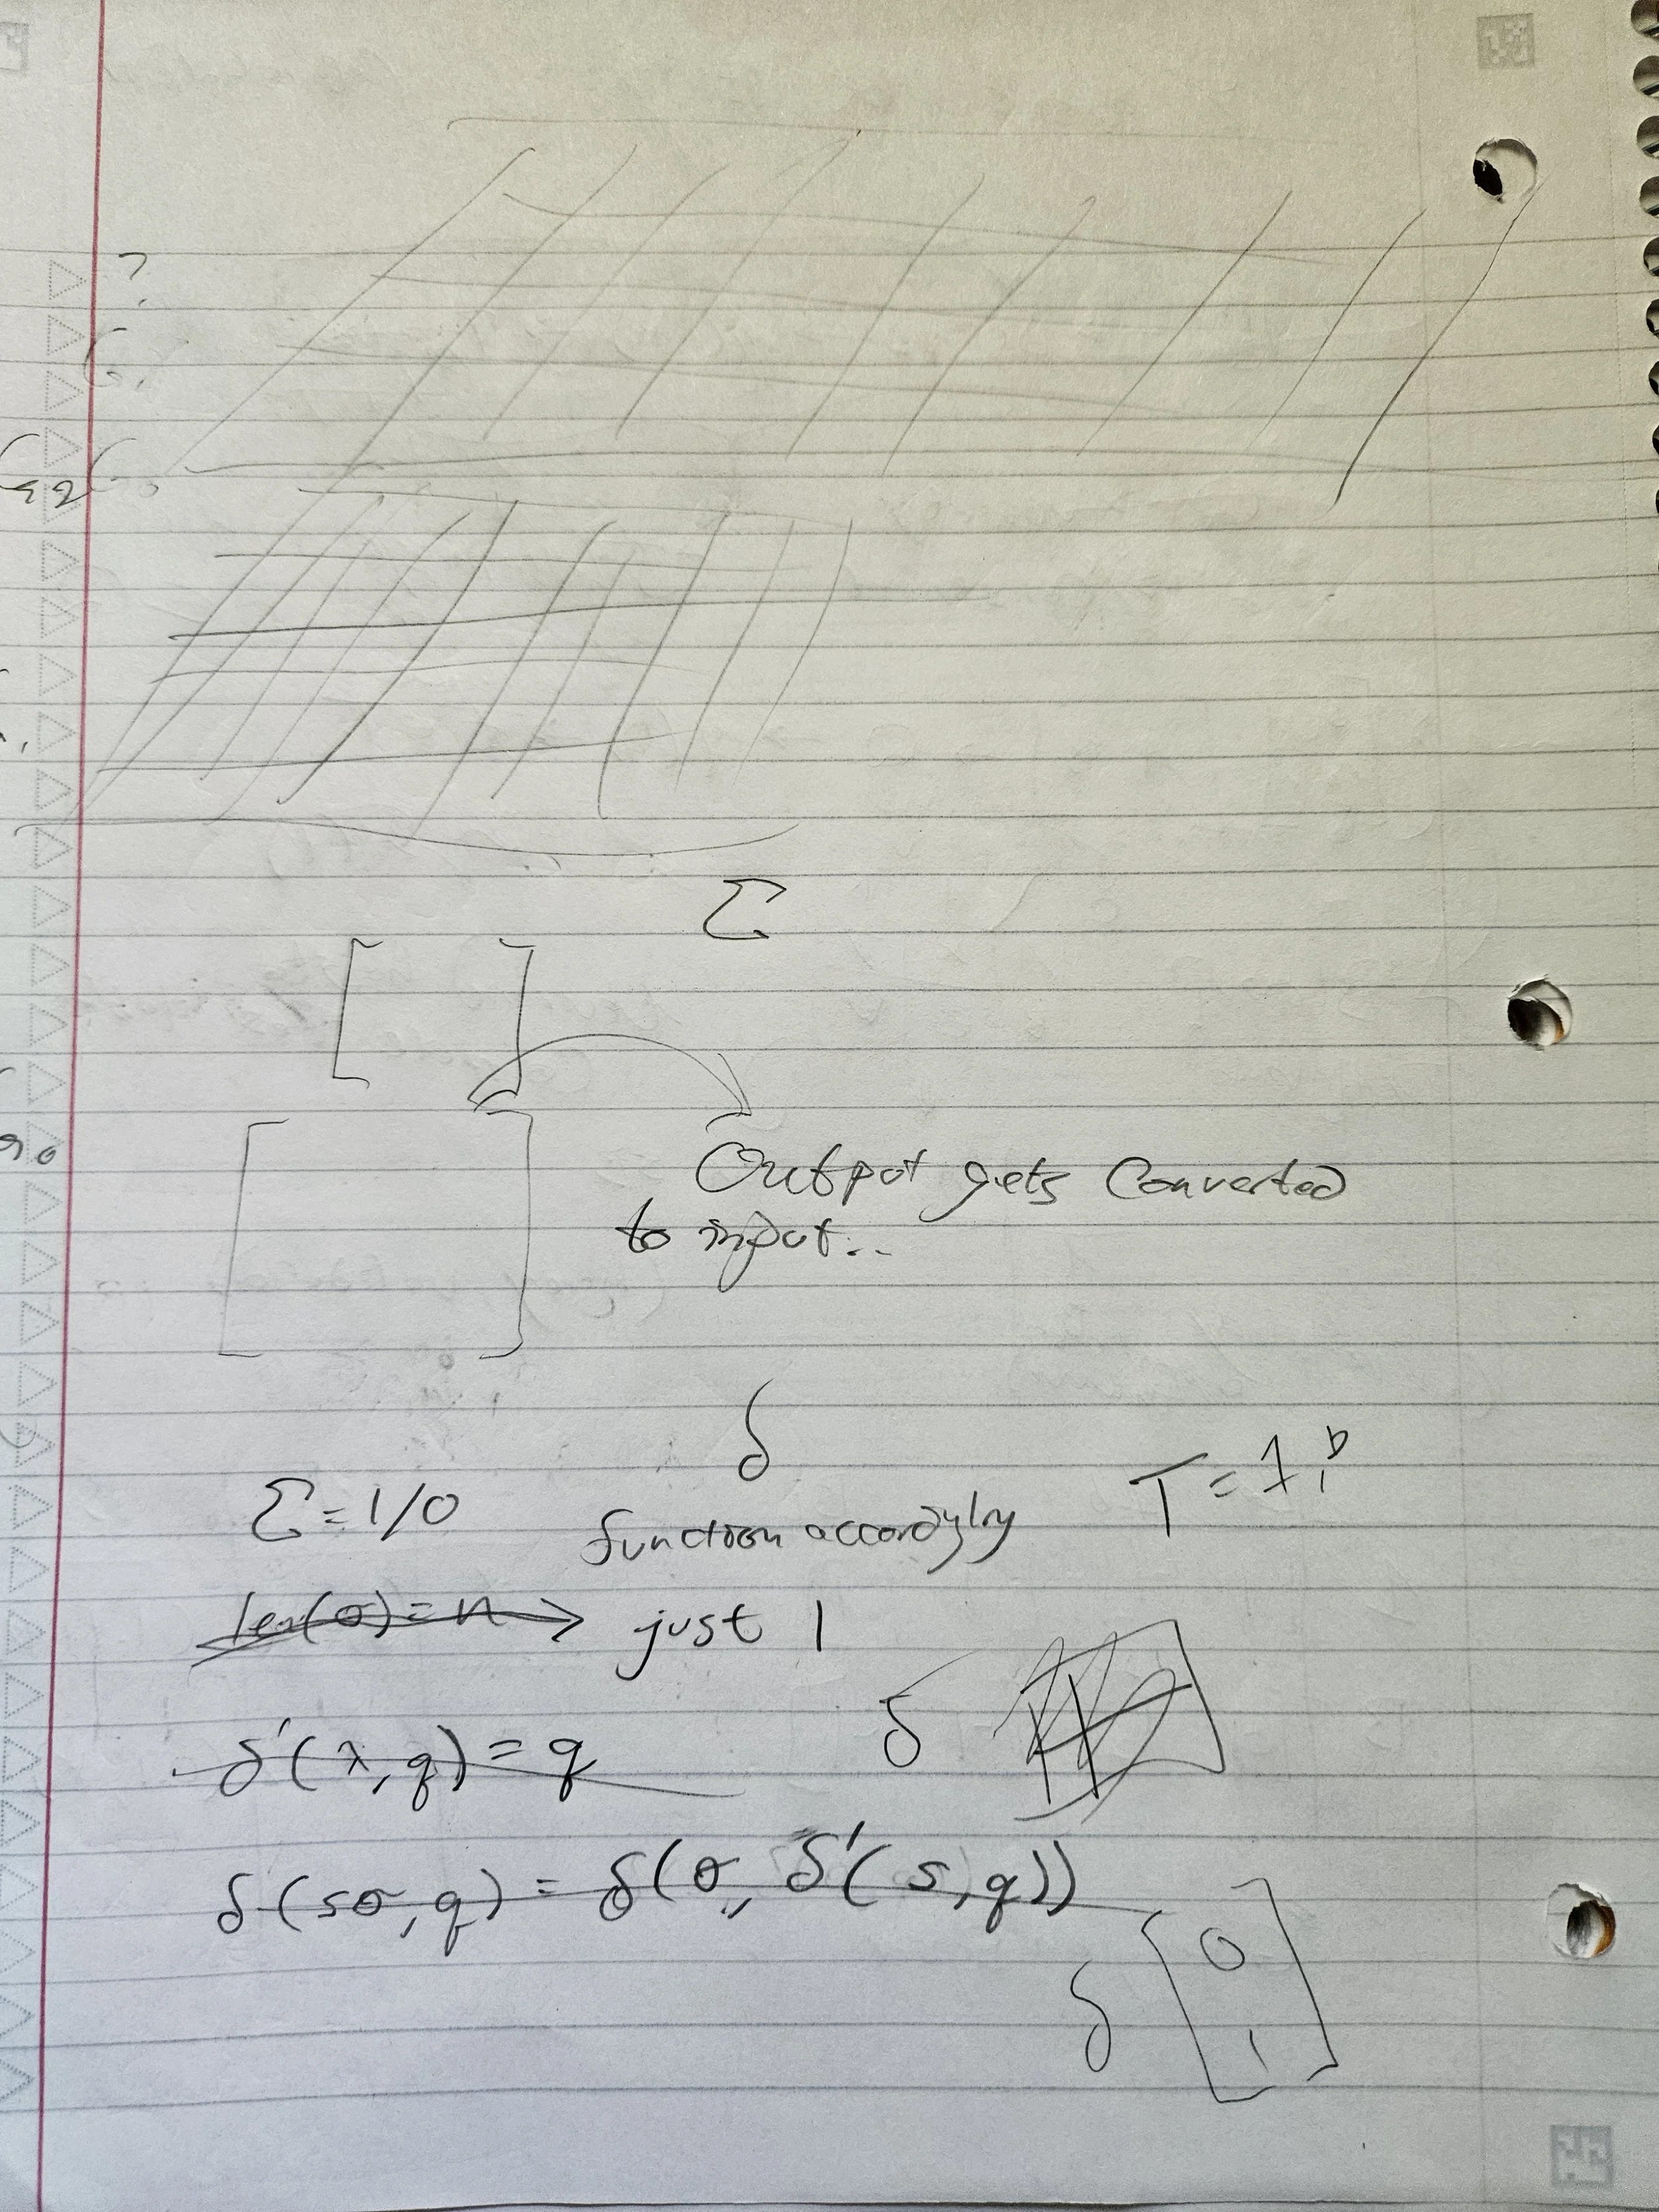 ?
Σ
Output gets Converted
to input...
δ
Σ = 1/0
function accordingly
T = 1, b
len(σ) = n → just 1
δ'(λ, q) = q
δ
δ(sσ, q) = δ(σ, δ'(s, q))
δ [0
1]